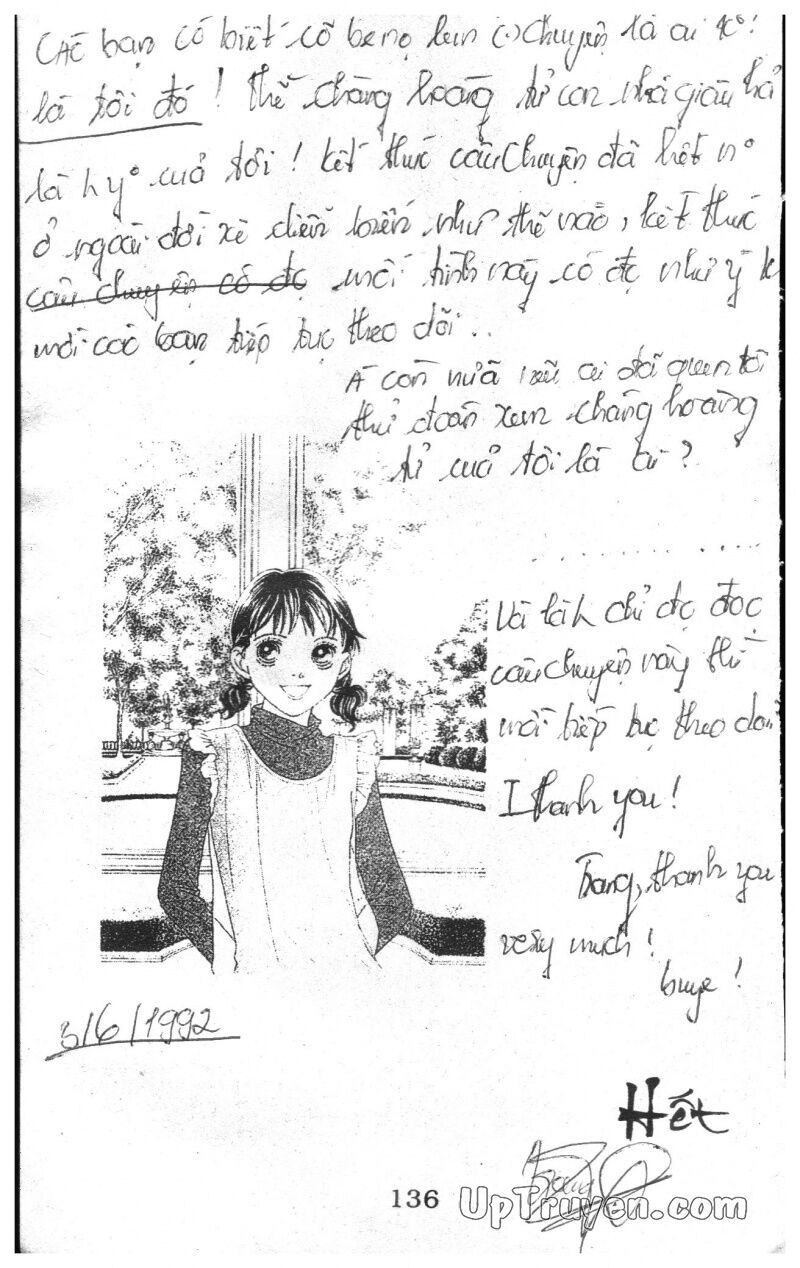 CÁC bạn có biết cô bé nọ trong chuyện là ai ko?
là tôi đó! Thế chàng hoàng tử con nhà giàu hả
là hy° cuả tôi! kết thúc câu chuyện đã hết n°
ở ngoài đời xẽ diễn biến như thế nào, kết thúc
câu chuyện có đc mối tình này có đc như ý k
mời các bạn tiếp tục theo dõi..
À còn nữa nếu ai đã quen tôi
thử đoán xem chàng hoàng
tử cuả tôi là ai?
Và chỉ đc đọc
câu chuyện này thì
mời tiếp tục theo dõi
I thank you!
Trang, thank you
very much!
buye!
3/6/1992
Hết
136
UpTruyen.com